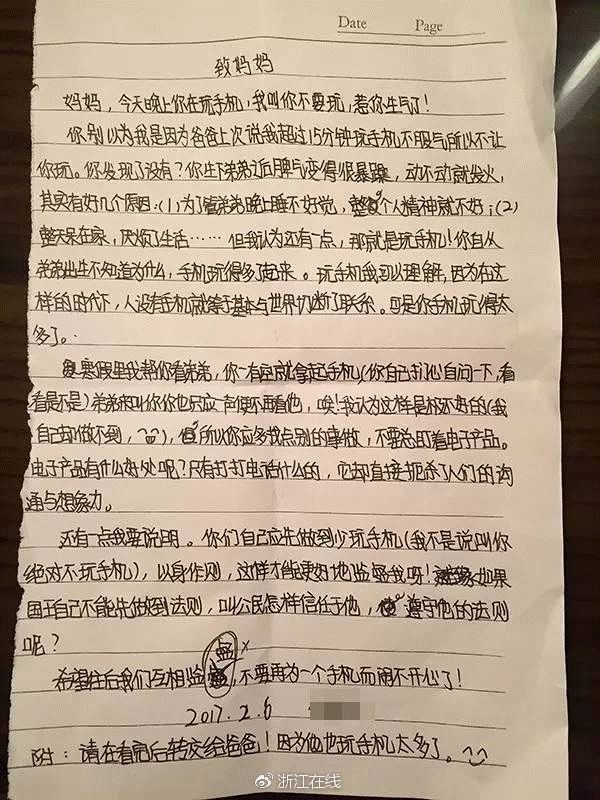 Date Page
致妈妈
妈妈，今天晚上你在玩手机，我叫你不要玩，惹你生气了！
你别以为我是因为爸爸上次说我超过15分钟玩手机不服气所以不让
你玩。你发现了没有？你生下弟弟近后脾气变得很暴躁，动不动就发火，
其实有好几个原因：（1）为了管弟弟晚上睡不好觉，整个人精神就不好；（2）
整天呆在家，厌烦了生活……但我认为还有一点，那就是玩手机！你自从
弟弟出生不知道为什么，手机玩得多了起来。玩手机我可以理解，因为在这
样的时代下，人没有手机就等于基本与世界切断了联系。可是你手机玩得太
多了。
寒假里我帮你看弟弟，你一有空就拿起手机（你自己扪心自问一下，看
看是不是）弟弟来叫你你也只应一声便不再看他，唉！我认为这样是极不好的（我
自己却做不到，），所以你应多找点别的事做，不要总盯着电子产品。
电子产品有什么好处呢？只有打打电话什么的，它却直接扼杀了人们的沟
通与想象力。
还有一点我要说明。你们自己应先做到少玩手机（我不是说叫你
绝对不玩手机），以身作则，这样才能更好地监督我呀！如果
国王自己不能先做到法则，叫公民怎样信任于他，遵守他的法则
呢？
希望往后我们互相监督，不要再为一个手机而闹不开心了！
2017.2.6
附：请在看完后转交给爸爸！因为他也玩手机太多了。
浙江在线